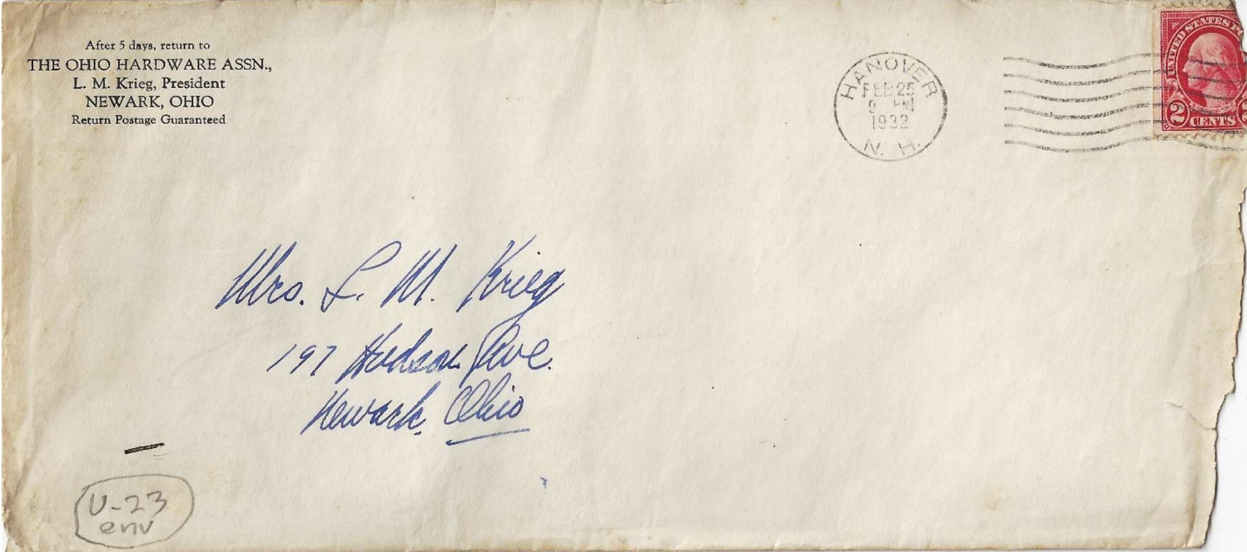 After 5 days, return to
THE OHIO HARDWARE ASSN.,
L. M. Krieg, President
NEWARK, OHIO
Return Postage Guaranteed
HANOVER
FEB 25
9 PM
1932
N. H.
UNITED STATES P
2 CENTS 2
Mrs. L. M. Krieg
197 Hudson Ave.
Newark, Ohio
U-23
env